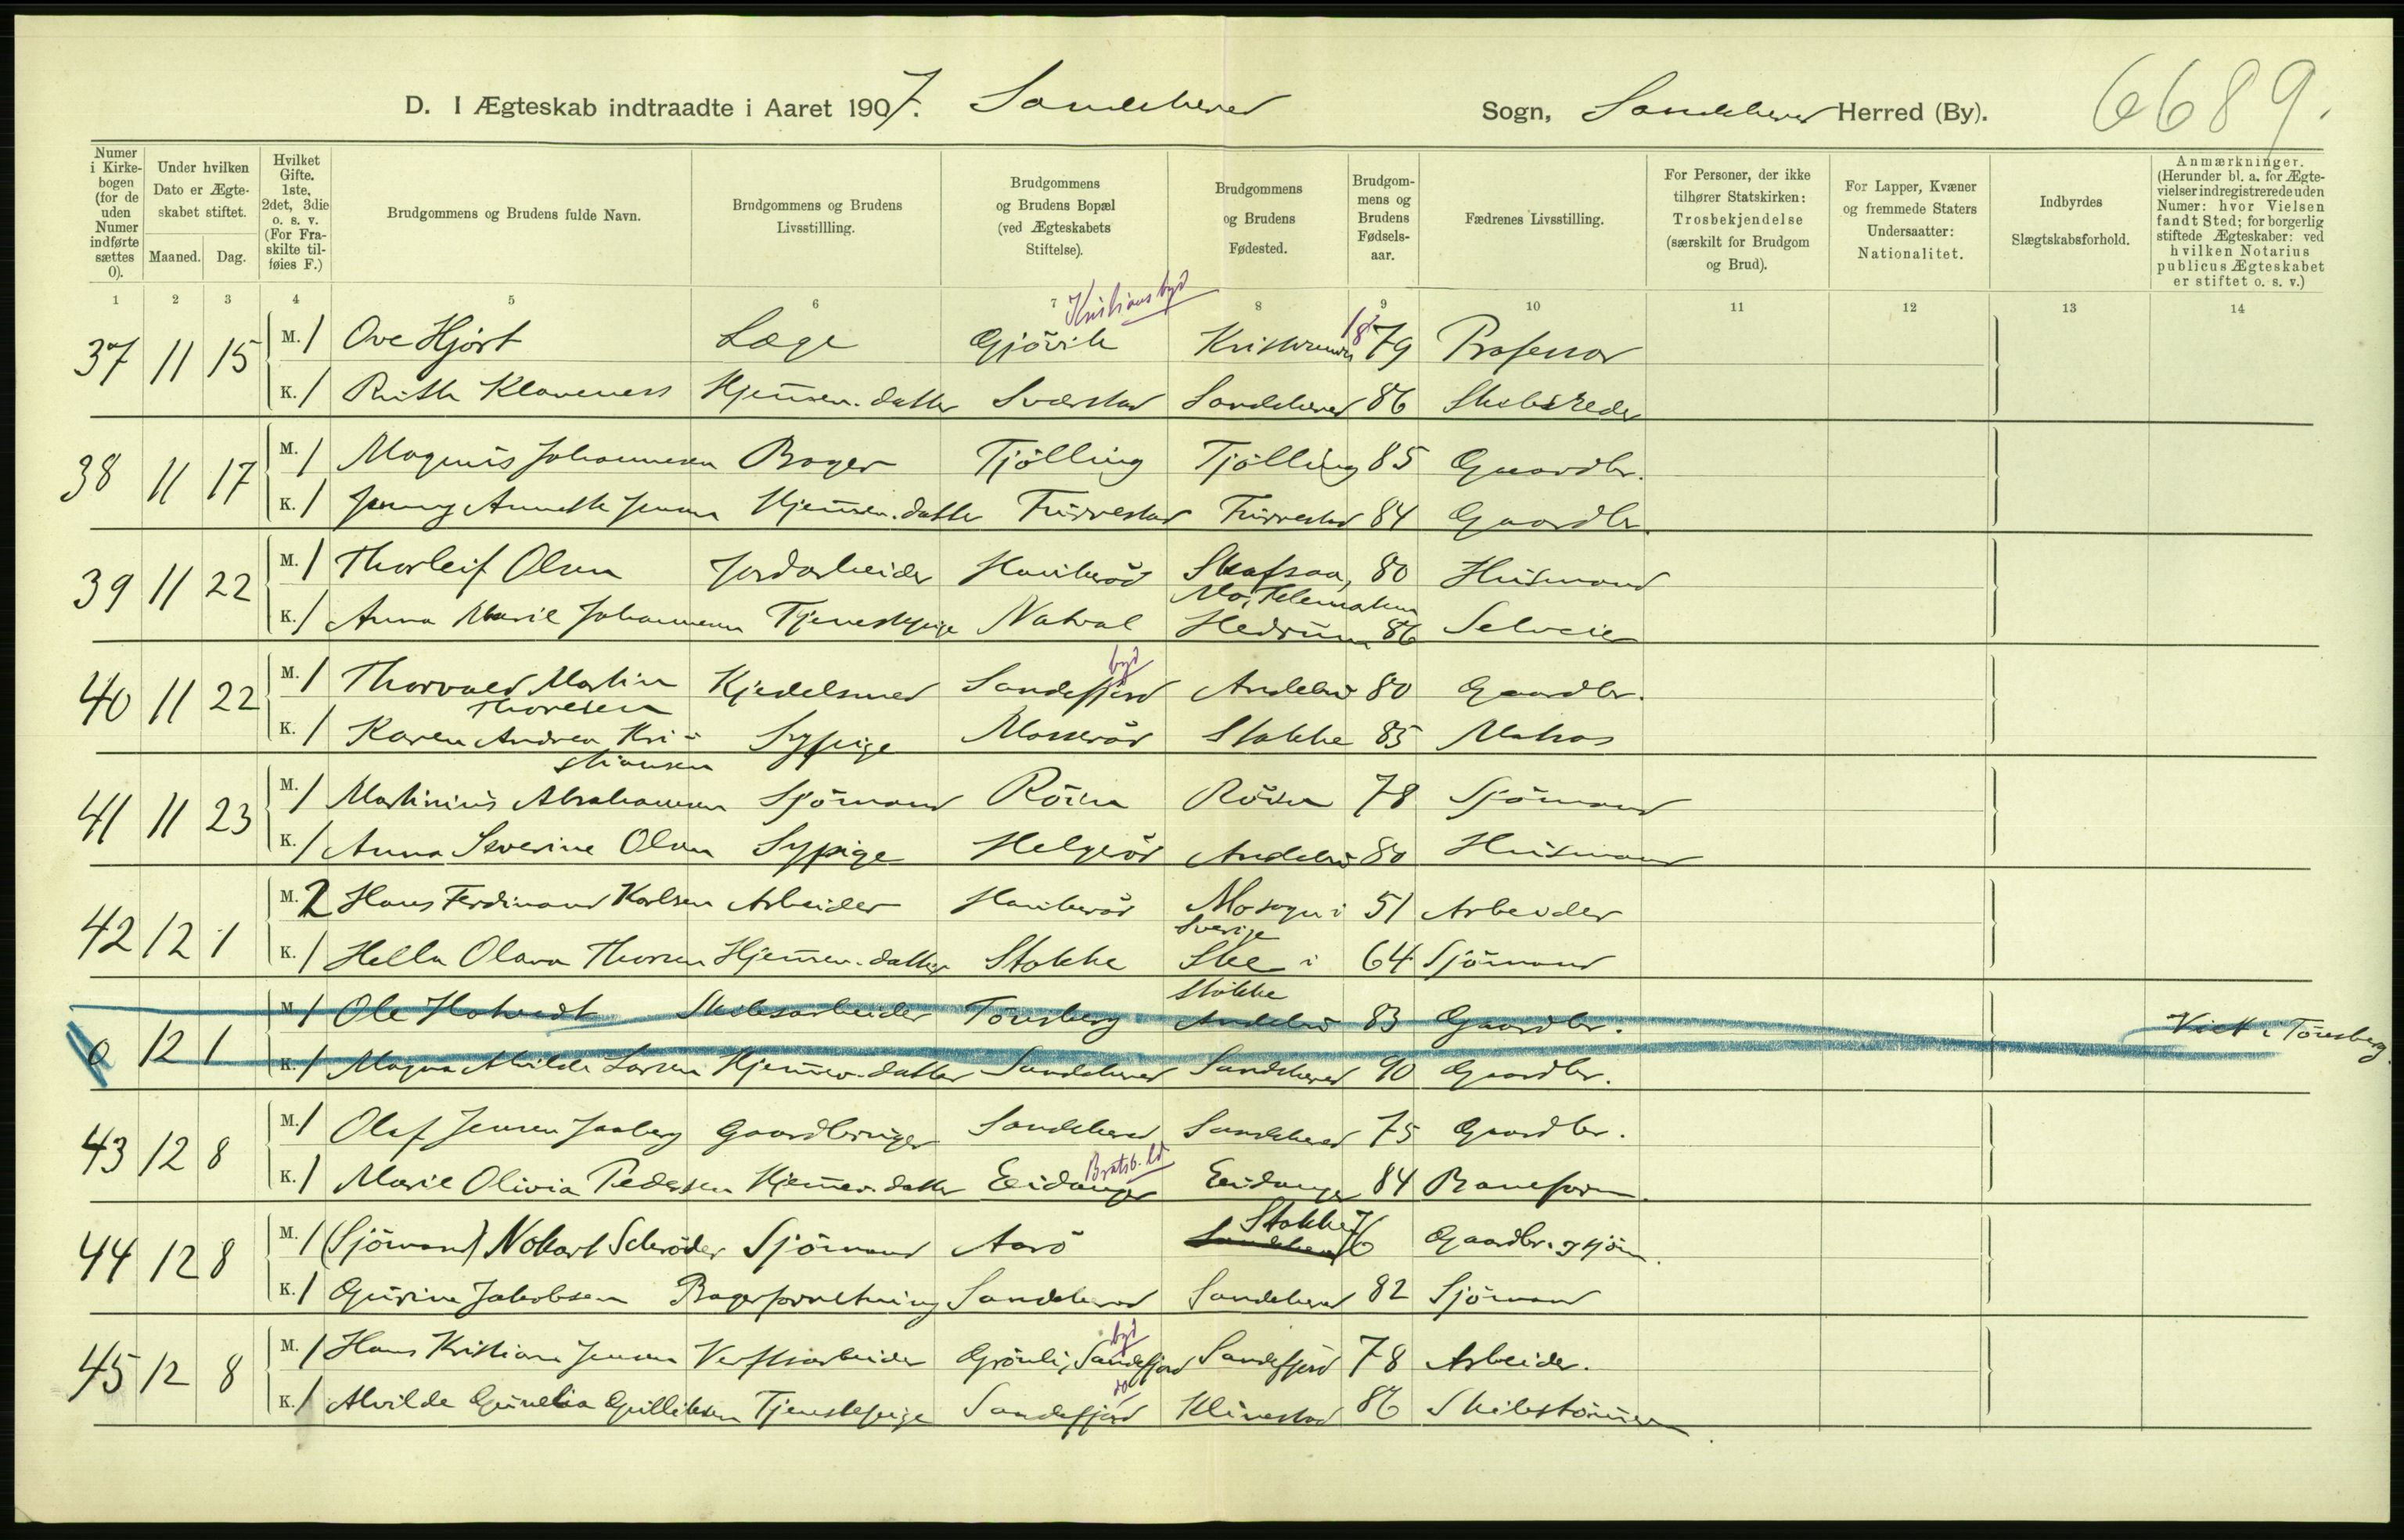 D. I Ægteskab indtraadte i Aaret 1907. Sandeherred Sogn, Sandeherred Herred (By). 6689.
Numer i Kirkebogen (for de uden Numer indførte sættes 0).
Under hvilken Dato er Ægteskabet stiftet.
Maaned. Dag.
Hvilket Gifte. 1ste, 2det, 3die o. s. v. (For Fraskilte tilføies F.)
Brudgommens og Brudens fulde Navn.
Brudgommens og Brudens Livsstillling.
Brudgommens og Brudens Bopæl (ved Ægteskabets Stiftelse).
Brudgommens og Brudens Fødested.
Brudgommens og Brudens Fødselsaar.
Fædrenes Livsstilling.
For Personer, der ikke tilhører Statskirken: Trosbekjendelse (særskilt for Brudgom og Brud).
For Lapper, Kvæner og fremmede Staters Undersaatter: Nationalitet.
Indbyrdes Slægtskabsforhold.
Anmærkninger. (Herunder bl. a. for Ægtevielser indregistrerede uden Numer: hvor Vielsen fandt Sted; for borgerlig stiftede Ægteskaber: ved hvilken Notarius publicus Ægteskabet er stiftet o. s. v.)
1 2 3 4 5 6 7 8 9 10 11 12 13 14
Kristians byd
37 11 15 M. 1 Ove Hjort Læge Gjövik Kristiania 1879 Professor
K. 1 Ruth Klaveness Hjemmev. datter Sværstad Sandeherred 86 Skibsreder
38 11 17 M. 1 Magnus Johannesen Bager Tjölling Tjölling 85 Gaardbr.
K. 1 Jenny Annette Jensen Hjemmev. datter Furrestad Furrestad 84 Gaardbr.
39 11 22 M. 1 Thorleif Olsen Jordarbeider Hauberöd Skafsaa, Mo, Telemarken 80 Husmand
K. 1 Anna Marie Johannesen Tjenestepige Natval Hedrum 86 Selveier
40 11 22 M. 1 Thorvald Martin Thoresen Kjedelsmed Sandefjord byd Andebu 80 Gaardbr.
K. 1 Karen Andrea Kristiansen Sypige Mosseröd Stokke 85 Matros
41 11 23 M. 1 Martinius Abrahamsen Sjömand Röiea Röiea 78 Sjömand
K. 1 Anna Severine Olsen Sypige Helgeröd Andebu 80 Husmand
42 12 1 M. 2 Hans Ferdinand Karlsen Arbeider Hauberöd Mo sogn i Sverige 51 Arbeider
K. 1 Hella Olava Thoresen Hjemmev. datter Stokke Skee i Stokke 64 Sjömand
0 12 1 M. 1 Ole Hotvedt Skibsarbeider Tönsberg Andebu 83 Gaardbr. Viet i Tönsberg
K. 1 Magna Alvilde Larsen Hjemmev. datter Sandeherred Sandeherred 90 Gaardbr.
43 12 8 M. 1 Olaf Jensen Jaaberg Gaardbruger Sandeherred Sandeherred 75 Gaardbr.
K. 1 Marie Olivia Pedersen Hjemmev. datter Eidanger Bratsb. ld Eidanger 84 Baneform.
44 12 8 M. 1 (Sjömand) Nokart Schröder Sjömand Aarö Stokke 76 Gaardbr. og sjöm.
K. 1 Gurine Jakobsen Bagerforretning Sandeherred Sandeherred 82 Sjömand
45 12 8 M. 1 Hans Kristian Jensen Verftsarbeider Grönli, Sandefjord byd Sandefjord 78 Arbeider.
K. 1 Alvilde Gunelia Gulliksen Tjenestepige Sandefjord do Klinestad 86 Skibstömmerm.